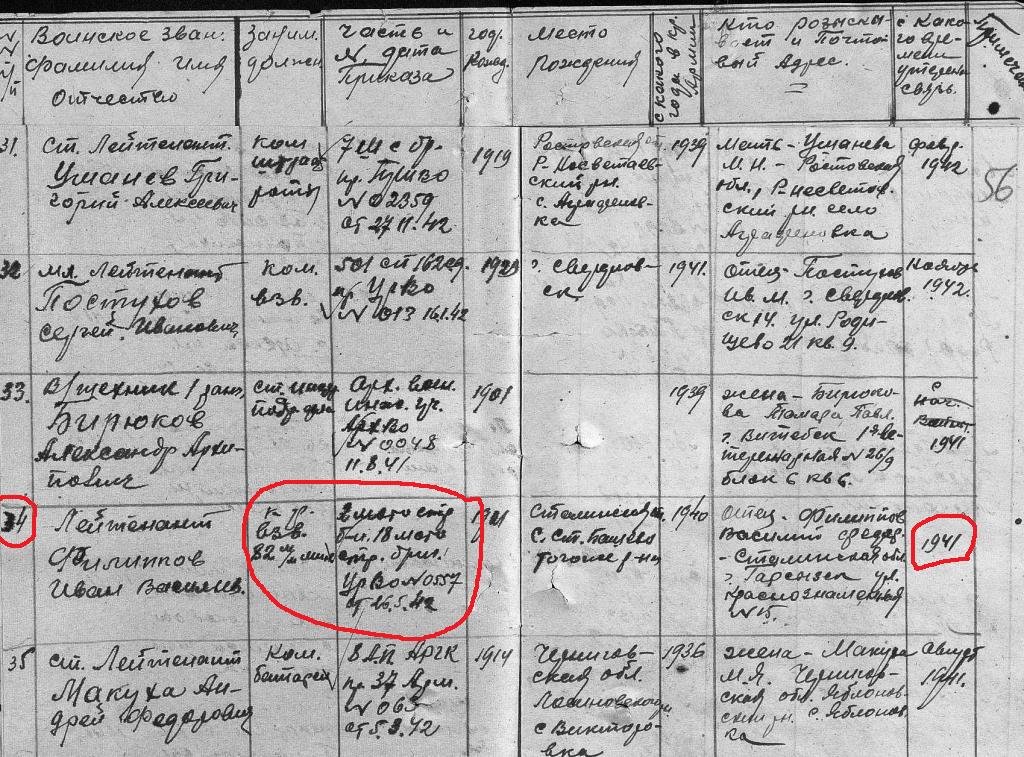 Воинское Зван.
Фамилия Имя
Отчество
Заним.
должн
Часть и
№ дата
Приказа
год.
рожд.
Место
Рождения
с какого
года в кр.
Армии
Кто розыски-
вает и Почто-
вый Адрес.
с како-
го вре-
мени
утеряна
связь.
Примечан
31.
ст. Лейтенант.
Ушанев Гри-
горий Алексеевич
ком
роты
пр.
№ 02359
от 27 11. 42
1919
Ростовская
Р-Несветаев-
ский рн.
с.
1939
Мать - Ушанева
М. Н. - Ростовская
обл., Р. Несветаев-
ский рн село
февр-
1942
56
32
мл. Лейтенант
Постухов
Сергей. Иванович,
ком.
взв.
501 сп 162 сд.
пр УрВо
№ 013 16.1.42
г. Свердлов-
ск
1941.
отец - Постухов
Ив. М. г. Свердлов.
ск 14. ул. Ради-
щево 21 кв. 9.
1942.
33.
В/техник 1 ранг,
Бирюков
Александр Архи-
пович
ст.
Арх. воен.
АрхВо
№ 0048
11.8.41.
1901
1939
жена - Бирюко-
ва Тамара Павл.
г. Витебск 1я ве-
теренарная № 26/9
блок 6 кв 6.
с
нач.
1941
34
Лейтенант
Филиппов
Иван Василев.
к-р.
взв.
82 м/м мин
2 мото стр
бат. 18 мото
стр. бриг.
УрВо № 0557
от 26.5.42
1921
Сталинская
С. Ст. Бешево
1940
отец - Филиппов
Василий Федор.
- Сталинская обл.
г. ул.
Краснознаменная
№ 15.
1941
35
ст. Лейтенант
Макуха Ан-
дрей Федорович
ком.
батареи
8 АП АРГК
пр 37 Арм.
№ 063
от 5.3.42
1914
Чернигов-
ская обл.
с Викторо-
вка
1936
жена - Макуха
М. Я. Чернигов-
ская обл. Яблонов-
ский рн. с. Яблонов-
ка
Август
1941.